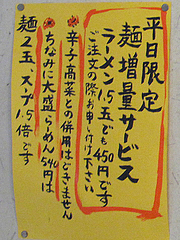 平日限定
麺増量サービス
ラーメン1.5玉でも450円です
ご注文の際お申し付け下さい
※辛子高菜との併用はできません
※ちなみに大盛らーめん540円は
麺2玉、スープ1.5倍です